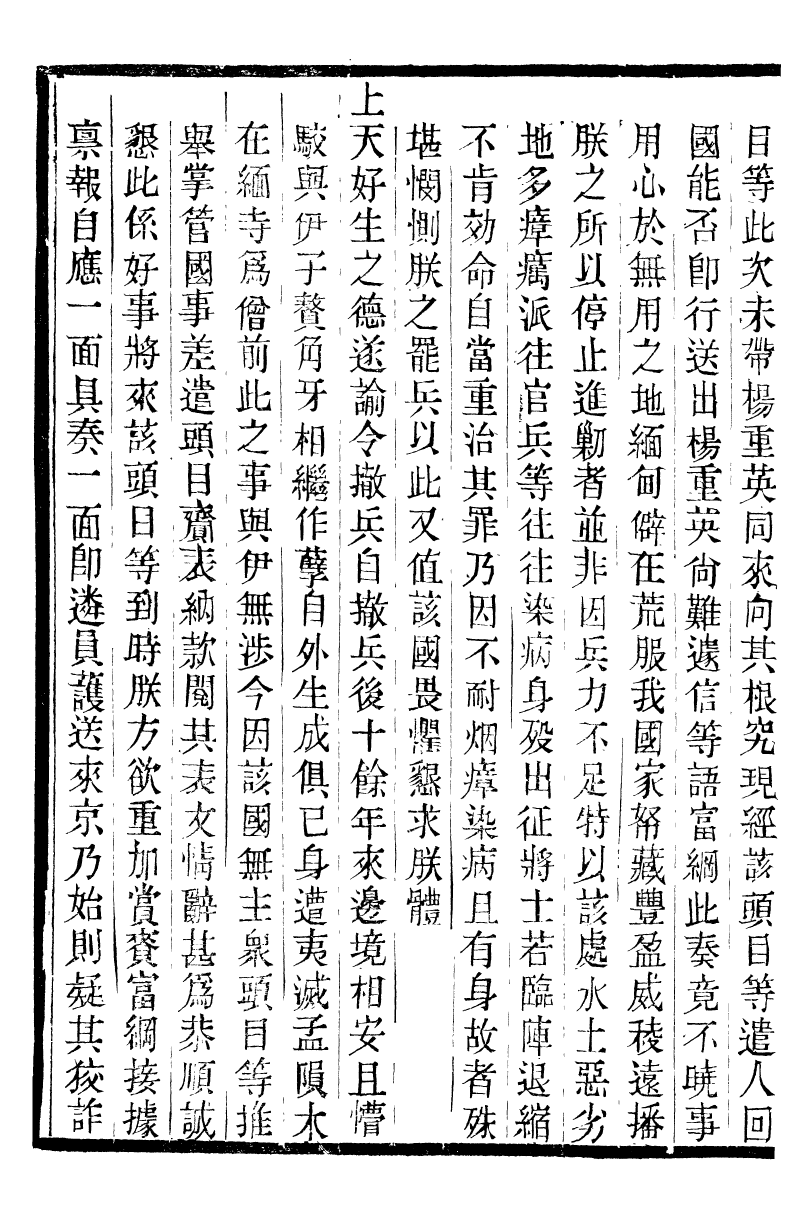 目等此次未帶楊重英同來向其根究現經該頭目等遣人回
國能否卽行送出楊重英尙難遽信等語富綱此奏竟不曉事
用心於無用之地緬甸僻在荒服我國家帑藏豐盈威稜遠播
朕之所以停止進勦者並非因兵力不足特以該處水土惡劣
地多瘴癘派往官兵等往往染病身歿出征將士若臨陣退縮
不肯効命自當重治其罪乃因不耐烟瘴染病且有身故者殊
堪憫惻朕之罷兵以此又值該國畏懼懇求朕體
上天好生之德遂諭令撤兵自撤兵後十餘年來邊境相安且懵
駁與伊子贅角牙相繼作孽自外生成俱已身遭夷滅孟隕本
在緬寺爲僧前此之事與伊無涉今因該國無主衆頭目等推
舉掌管國事差遣頭目齎表納款閱其表文情辭甚爲恭順誠
懇此係好事將來該頭目等到時朕方欲重加賞賚富綱接據
禀報自應一面具奏一面卽遴員護送來京乃始則疑其狡詐